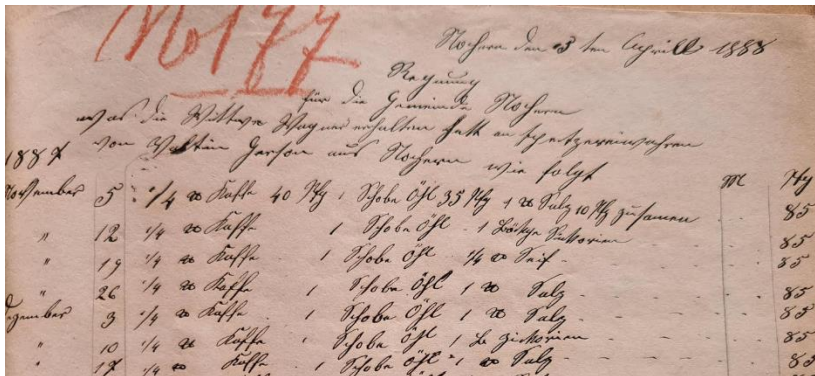 No 177
Nochern den 3 ten Aprill 1888
Regnung
für die Gemeinde Nochern
was die Wittwe Wagner erhalten hatt an Spetzereiwahren
von Valtin Gerson aus Nochern wie folgt
1887 M Pfg
November 5 1/4 ℔ Kaffe 40 Pfg 1 Schobe Öhl 35 Pfg 1 ℔ Salz 10 Pfg zusamen 85
" 12 1/4 ℔ Kaffe 1 Schobe Öhl 1 85
" 19 1/4 ℔ Kaffe 1 Schobe Öhl 1/4 ℔ Seif 85
" 26 1/4 ℔ Kaffe 1 Schobe Öhl 1 ℔ Salz 85
Dezember 3 1/4 ℔ Kaffe 1 Schobe Öhl 1 ℔ Salz 85
" 10 1/4 ℔ Kaffe 1 Schobe Öhl 1 85
" 17 1/4 ℔ Kaffe 1 Schobe Öhl 1 ℔ Salz 85